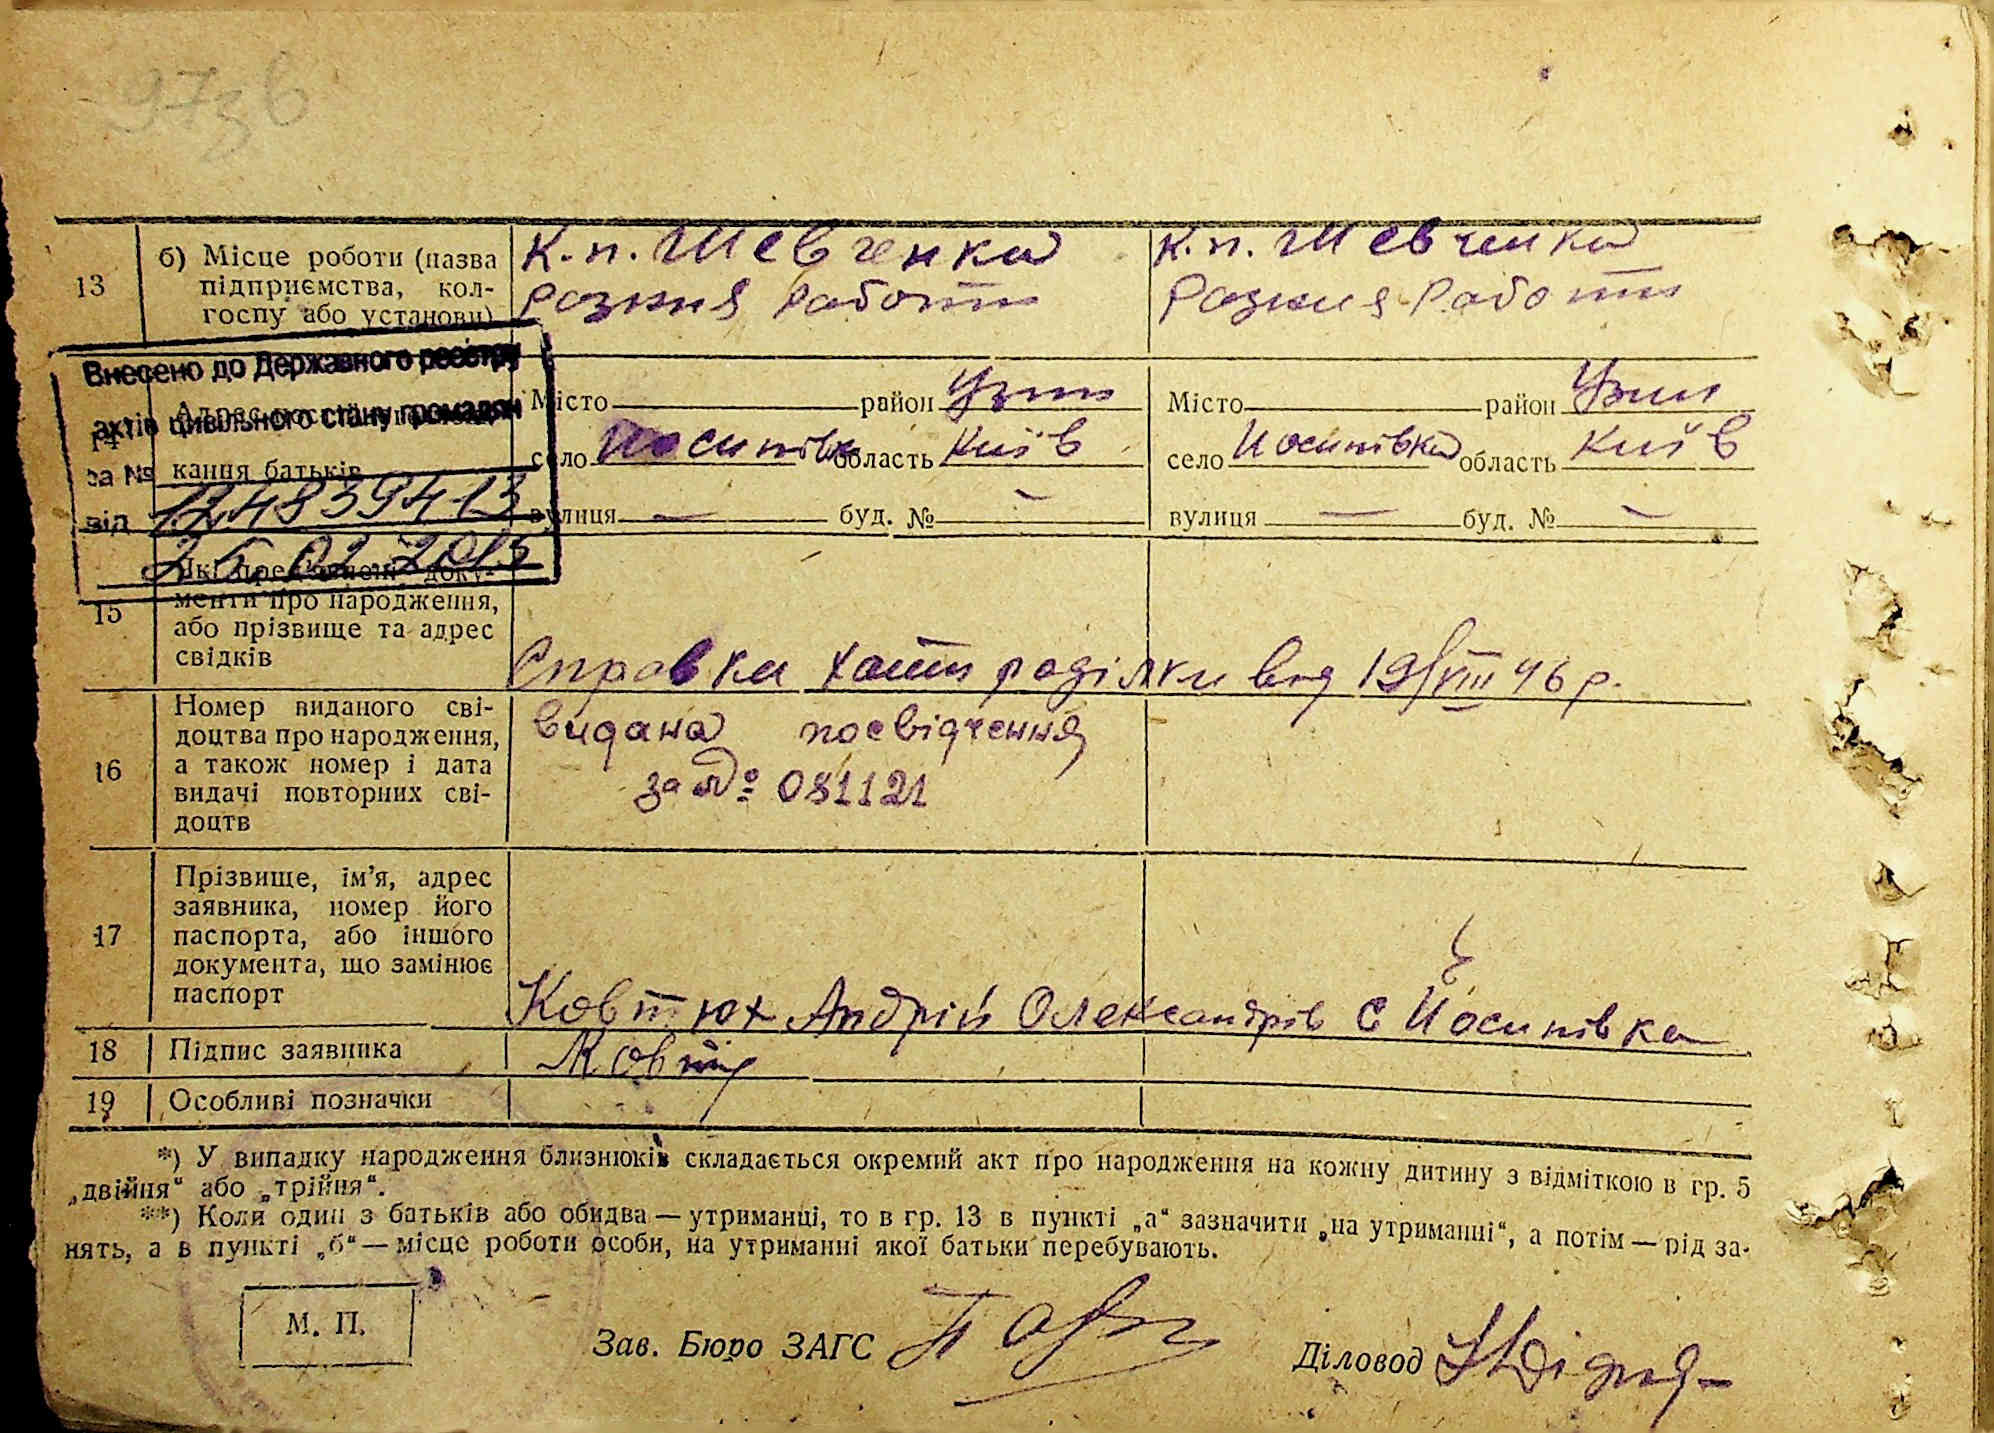 97зв
13
б) Місце роботи (назва підприємства, колгоспу або установи)
К.п. Шевченка
різния работи
К.п. Шевченка
Різния Работи
Внесено до Державного реєстру
актів цивільного стану громадян
за № 12483941-13
від 25 02 2013
14
кання батьків
Місто район Узин
село Йосипівка область Київ
вулиця — буд. № —
Місто район Узин
село Йосипівка область Київ
вулиця — буд. № —
15
Які пред'явлені документи про народження,
або прізвище та адрес
свідків
Справка хати роділки від 19/VIII 46 р.
16
Номер виданого сві-
доцтва про народження,
а також номер і дата
видачі повторних сві-
доцтв
видана посвідчення
за № 081121
17
Прізвище, ім'я, адрес
заявника, номер його
паспорта, або іншого
документа, що замінює
паспорт
Ковтюх Андрій Олександрів с Йосипівка
18
Підпис заявника
19
Особливі позначки
*) У випадку народження близнюків складається окремий акт про народження на кожну дитину з відміткою в гр. 5
„двійня“ або „трійня“.
**) Коли один з батьків або обидва — утриманці, то в гр. 13 в пункті „а“ зазначити „на утриманні“, а потім — рід за-
нять, а в пункті „б“ — місце роботи особи, на утриманні якої батьки перебувають.
М. П.
Зав. Бюро ЗАГС
Діловод